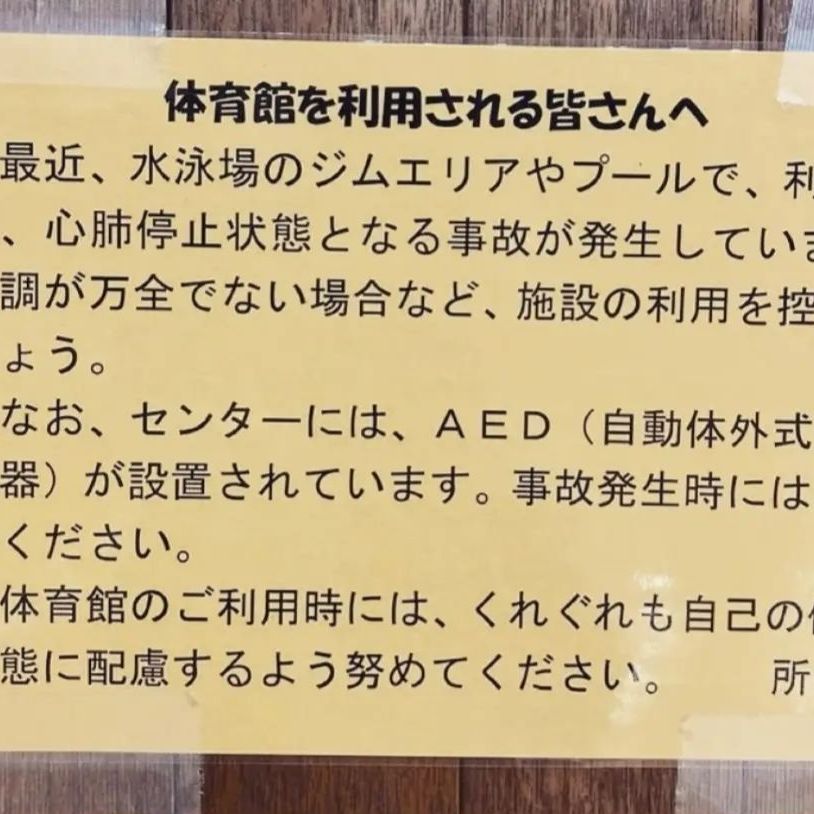 体育館を利用される皆さんへ
最近、水泳場のジムエリアやプールで、利
、心肺停止状態となる事故が発生していま
調が万全でない場合など、施設の利用を控
ょう。
なお、センターには、ＡＥＤ（自動体外式
器）が設置されています。事故発生時には
ください。
体育館のご利用時には、くれぐれも自己の
態に配慮するよう努めてください。　　所